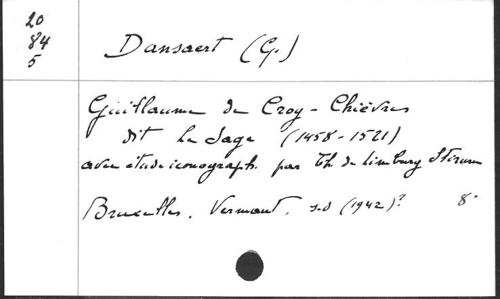 20
84
5
Dansaert (G.)
Guillaume de Croy-Chièvres
dit le Sage (1458-1521)
avec étude iconograph. par Th. de Limburg Stirum
Bruxelles, Vermaut, s.d (1942)? 8°